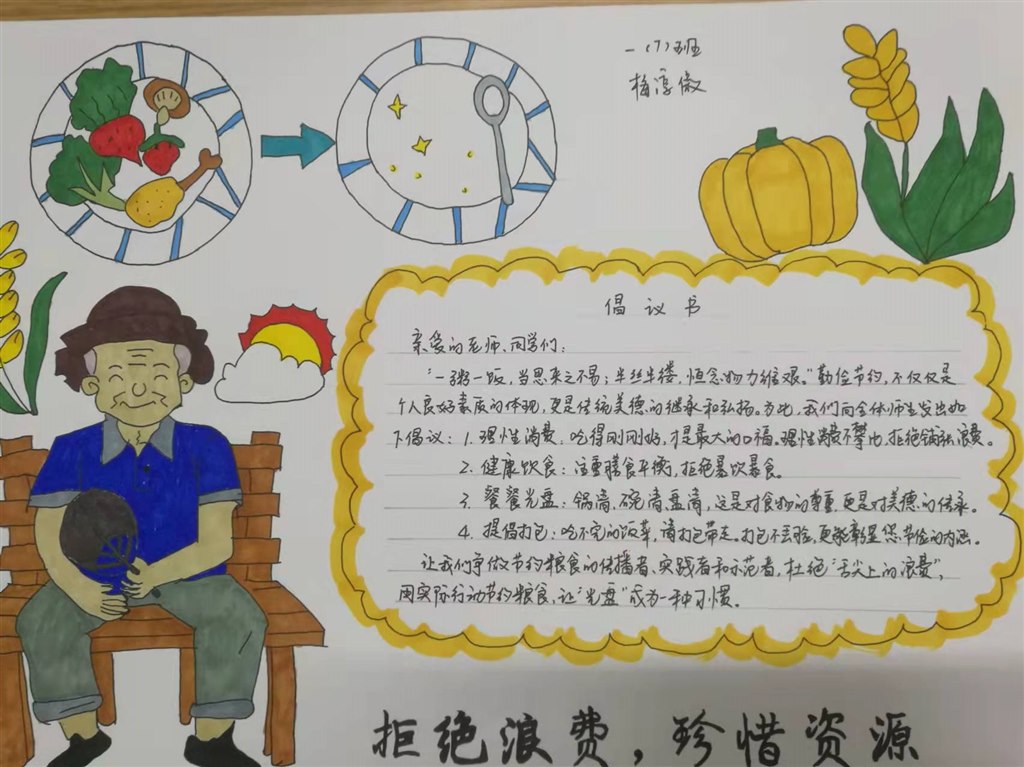 一（7）班
梅淳傲
倡议书
亲爱的老师、同学们：
“一粥一饭，当思来之不易；半丝半缕，恒念物力维艰。”勤俭节约，不仅仅是
个人良好素质的体现，更是传统美德的继承和弘扬。为此，我们向全体师生发出如
下倡议：1.理性消费：吃得刚刚好，才是最大的口福。理性消费不攀比，拒绝铺张浪费。
2.健康饮食：注重膳食平衡，拒绝暴饮暴食。
3.餐餐光盘：锅清、碗清、盘清，这是对食物的尊重，更是对美德的传承。
4.提倡打包：吃不完的饭菜，请打包带走。打包不丢脸，更能彰显您节俭的内涵。
让我们争做节约粮食的传播者、实践者和示范者，杜绝“舌尖上的浪费”，
用实际行动节约粮食，让“光盘”成为一种习惯。
拒绝浪费，珍惜资源